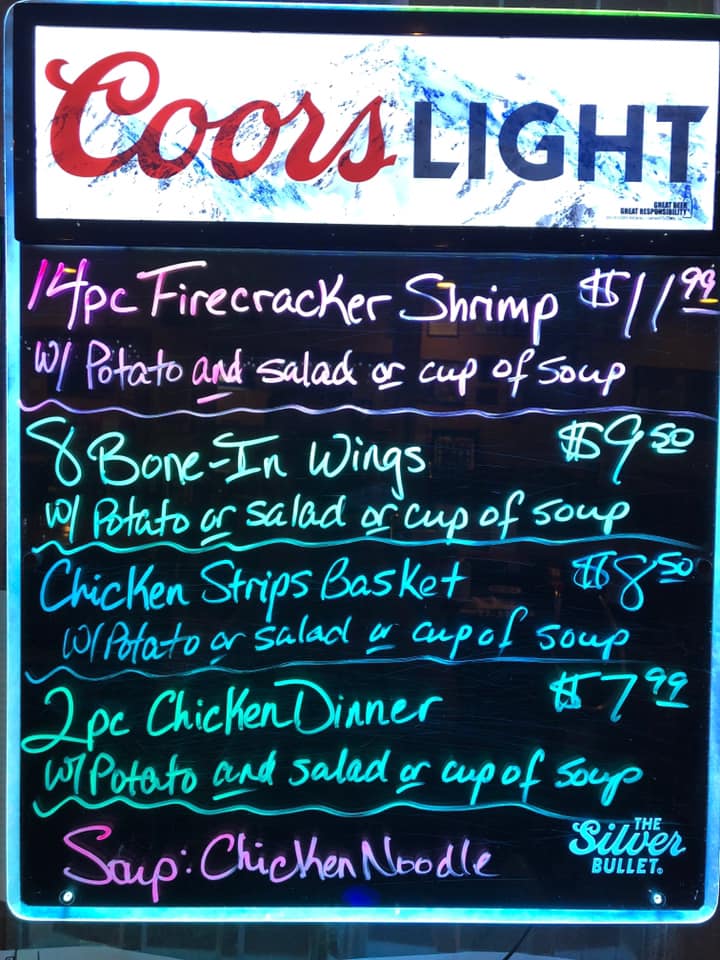 Coors LIGHT
GREAT BEER
GREAT RESPONSIBILITY
14pc Firecracker Shrimp $11.99
w/ Potato and salad or cup of soup
8 Bone-In Wings $9 50
w/ Potato or salad or cup of soup
Chicken Strips Basket $8 50
w/ Potato or salad or cup of soup
2pc Chicken Dinner $7 99
w/ Potato and salad or cup of soup
Soup: Chicken Noodle
THE
Silver
BULLET.